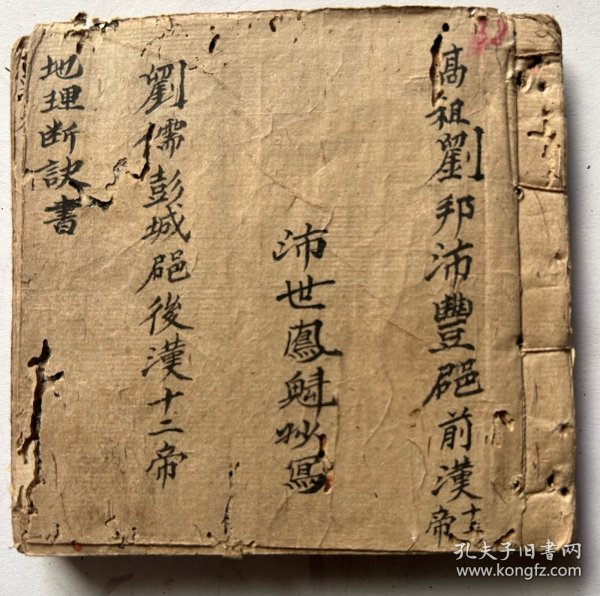 高祖劉邦沛豐邑前漢十二帝
沛世鳳魁抄寫
劉儒彭城邑後漢十二帝
地理断訣書
孔夫子旧书网
www.kongfz.com